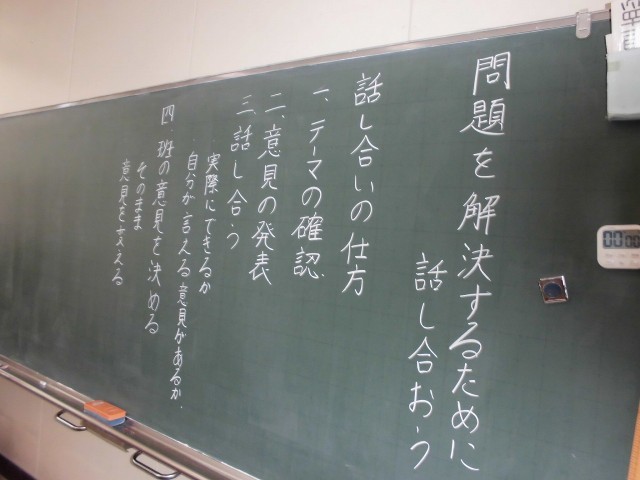 問題を解決するために
話し合おう
話し合いの仕方
一、テーマの確認
二、意見の発表
三、話し合う
実際にできるか
・自分が言える意見があるか。
四、班の意見を決める
そのまま
意見を支える
00:00